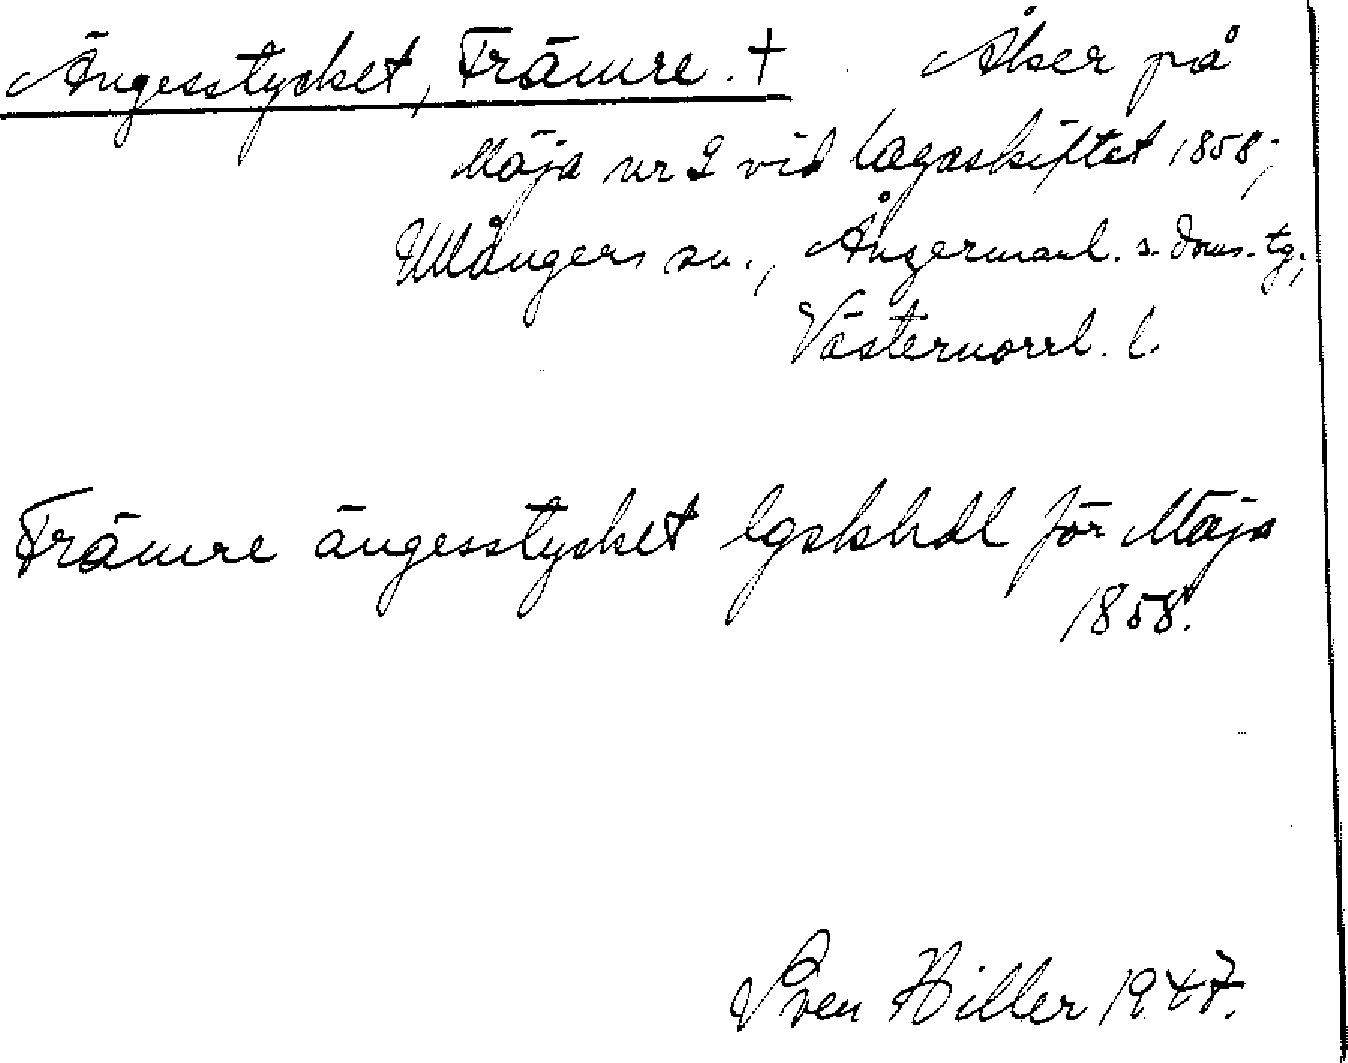 Ängesstycket, Främre. † Åker på
Mäja nr 2 vid lagaskiftet 1858;
Ullångers sn., Ångermanl. s. doms. tg.,
Västernorrl. l.
Främre ängesstycket lgskhdl för Mäja
1858.
Sven Hiller 1947.